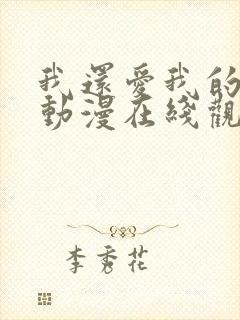 我還愛我的
動漫在綫觀
李秀花